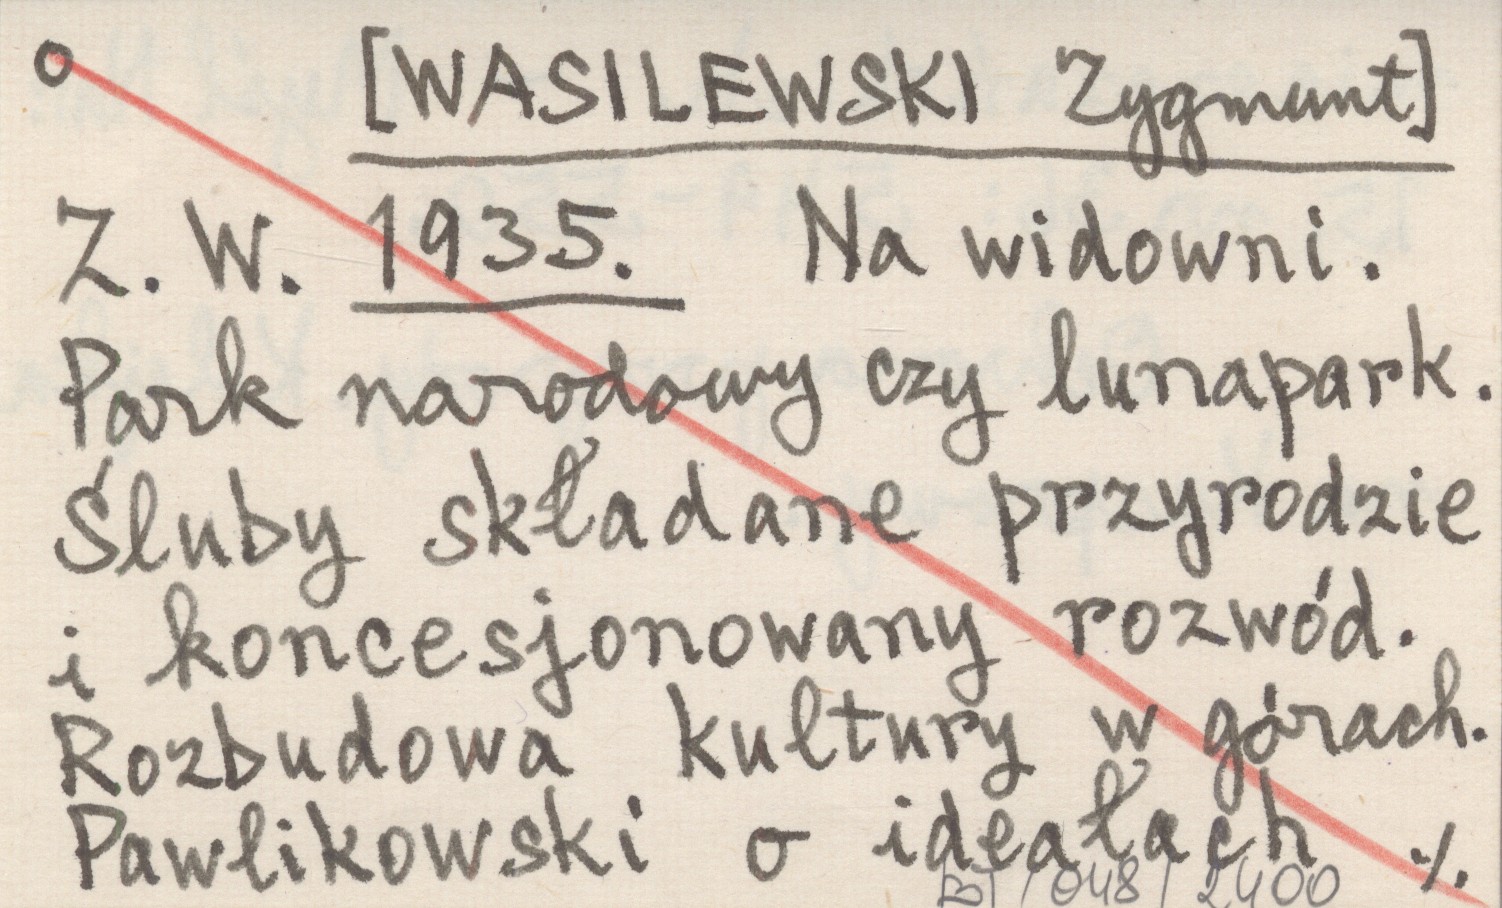 o [WASILEWSKI Zygmunt]
Z. W. 1935. Na widowni.
Park narodowy czy lunapark.
Śluby składane przyrodzie
i koncesjonowany rozwód.
Rozbudowa kultury w górach.
Pawlikowski o ideałach ./.
BT / 048 / 2400